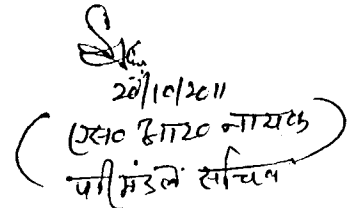 20/10/2011
(एस० आर० नायक)
परिमंडल सचिव